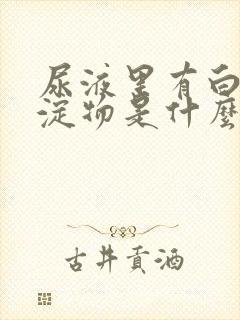 尿液里有白
淀物是什麼
古井貢酒